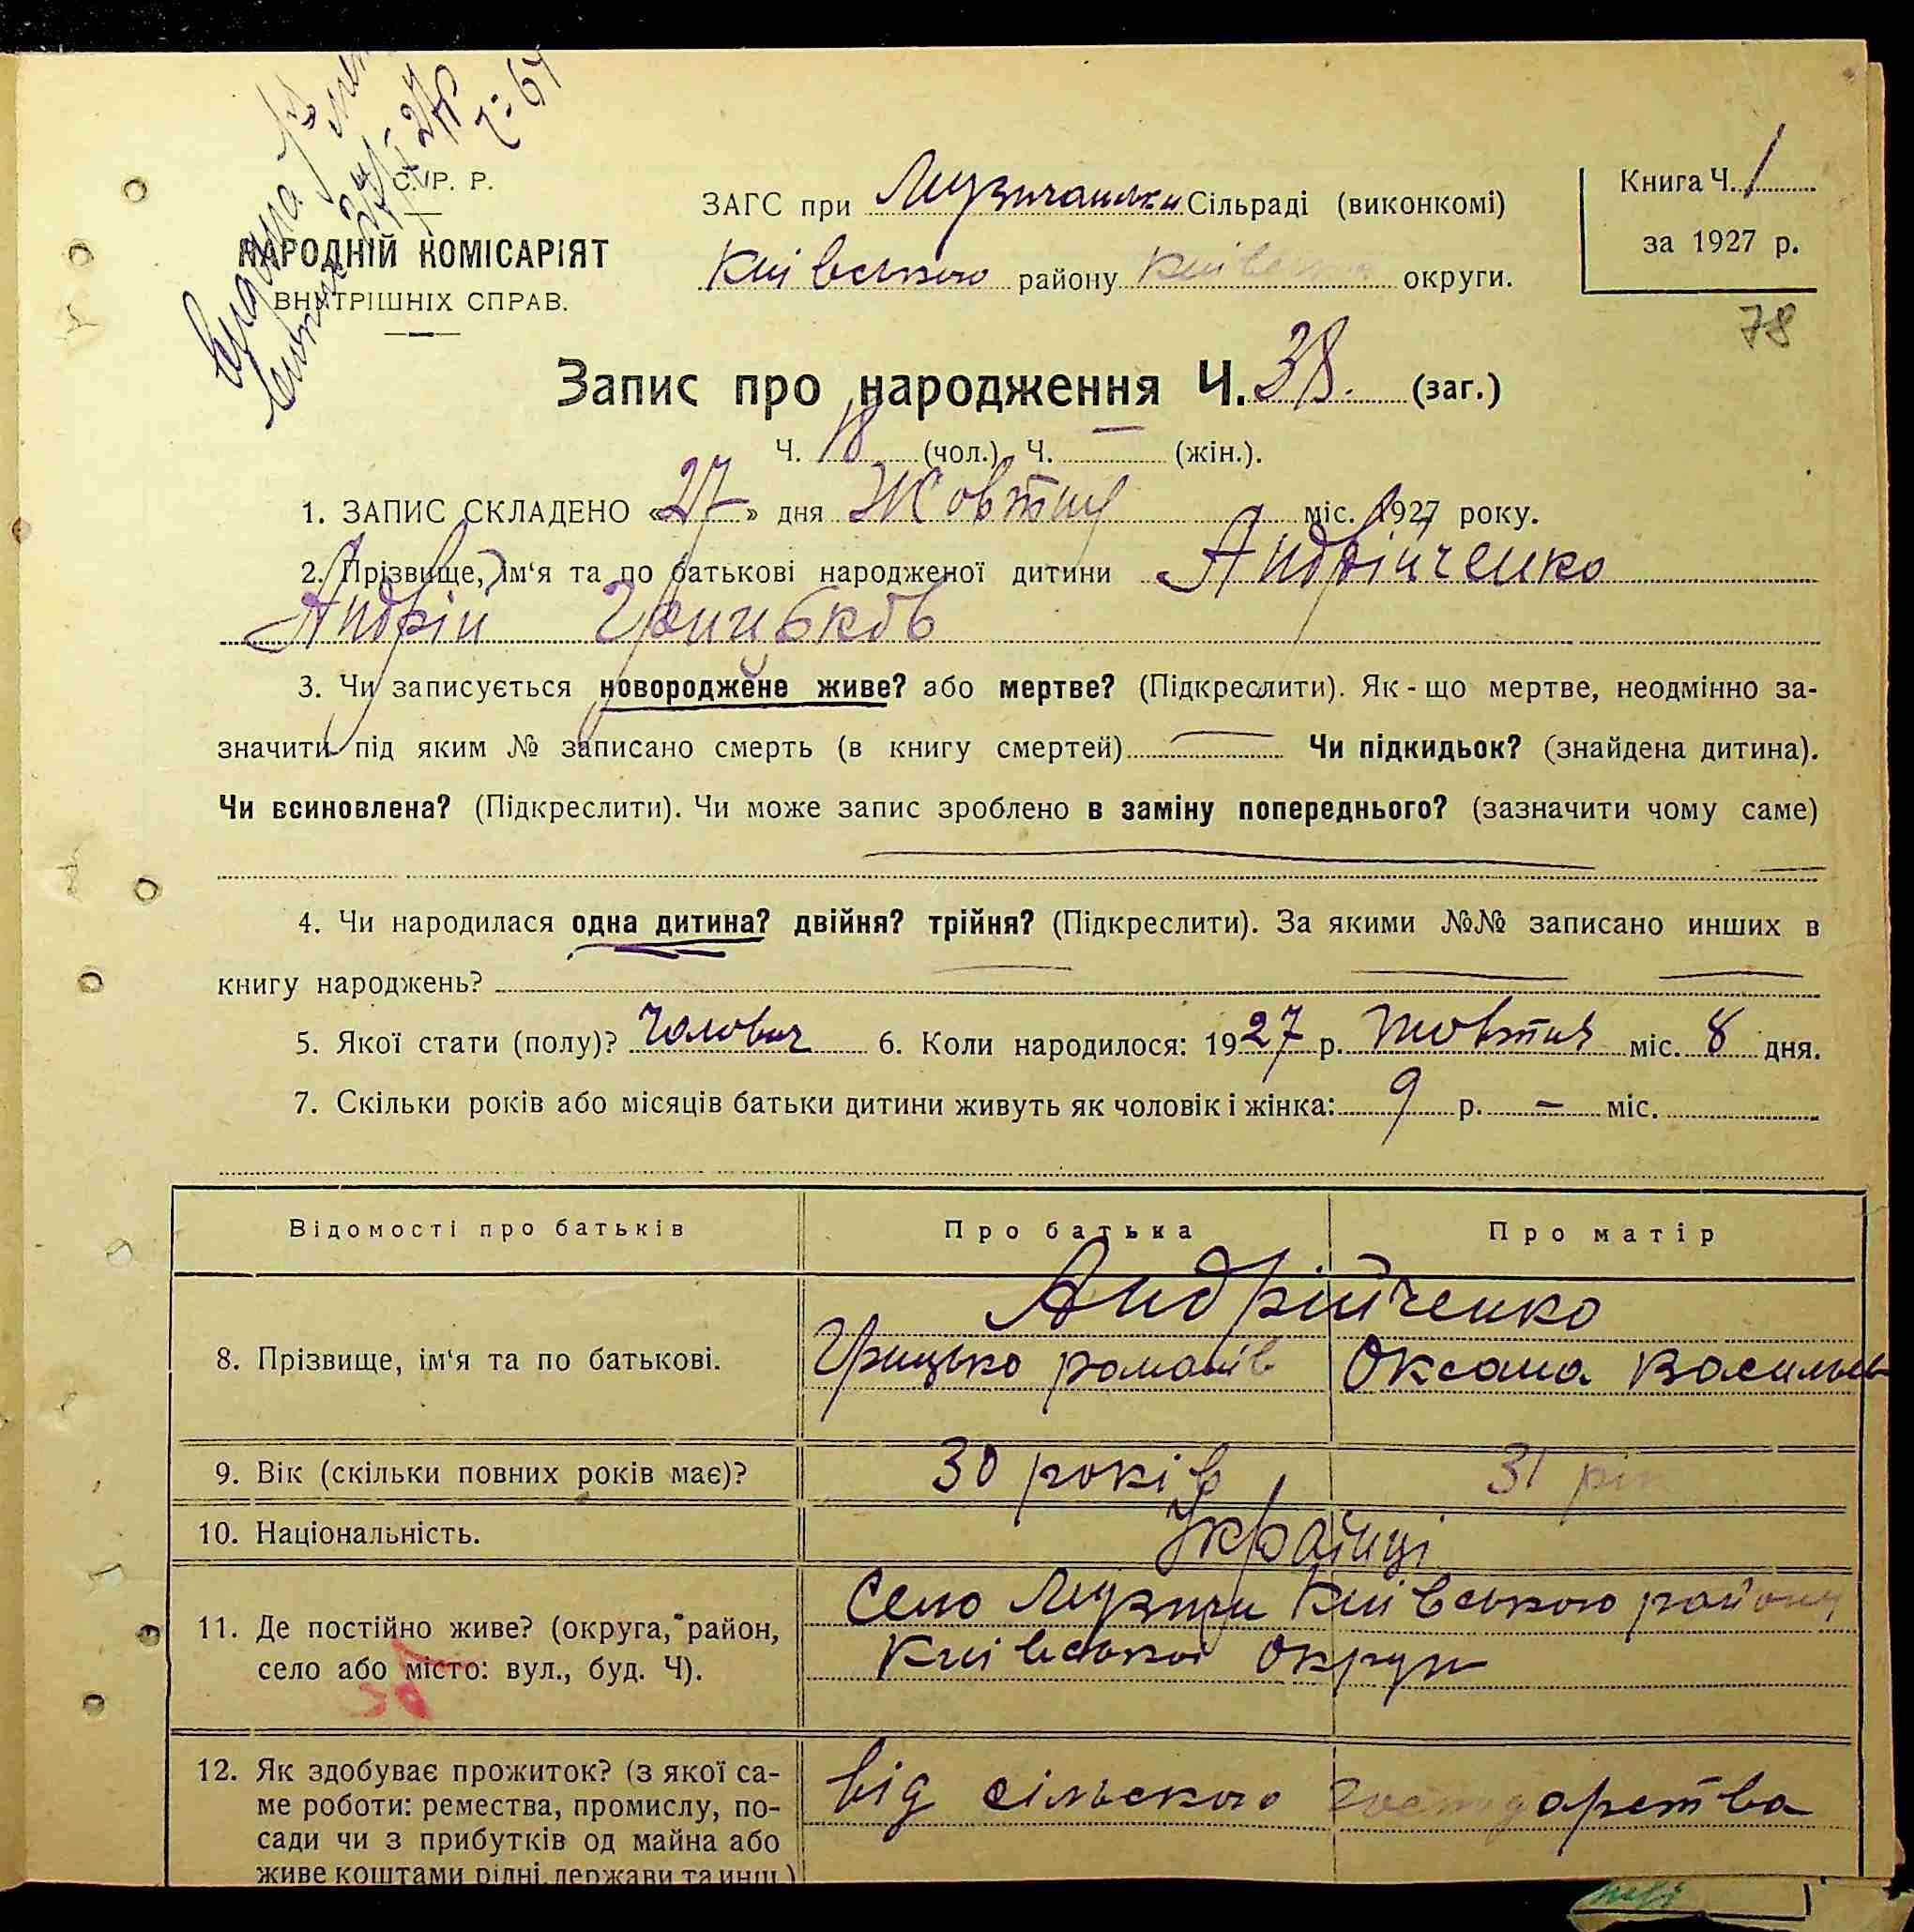 Видана
С. Р. Р.
НАРОДНІЙ КОМІСАРІЯТ
ВНУТРІШНІХ СПРАВ.
ЗАГС при Музичанськи Сільраді (виконкомі)
Київського району Київської округи.
Книга Ч. 1
за 1927 р.
78
Запис про народження Ч. 38. (заг.)
Ч. 18 (чол.) Ч. — (жін.).
1. ЗАПИС СКЛАДЕНО «27» дня Жовтня міс. 1927 року.
2. Прізвище, ім‘я та по батькові народженої дитини Андрійченко
Андрій Грицьков
3. Чи записується новороджене живе? або мертве? (Підкреслити). Як-що мертве, неодмінно за-
значити під яким № записано смерть (в книгу смертей) — Чи підкидьок? (знайдена дитина).
Чи всиновлена? (Підкреслити). Чи може запис зроблено в заміну попереднього? (зазначити чому саме)
4. Чи народилася одна дитина? двійня? трійня? (Підкреслити). За якими №№ записано инших в
книгу народжень?
5. Якої стати (полу)? Чоловіч 6. Коли народилося: 1927 р. Жовтня міс. 8 дня.
7. Скільки років або місяців батьки дитини живуть як чоловік і жінка: 9 р. — міс.
Відомості про батьків Про батька Про матір
Андрійченко
8. Прізвище, ім‘я та по батькові. Грицько Романів Оксана Васильев
9. Вік (скільки повних років має)? 30 років 31 рік
10. Національність. Українці
11. Де постійно живе? (округа, район, Село Музичи Київського району
село або місто: вул., буд. Ч). Київської Округи
12. Як здобуває прожиток? (з якої са- від сільского господарства
ме роботи: ремества, промислу, по-
сади чи з прибутків од майна або
живе коштами рідні, держави та инш.)